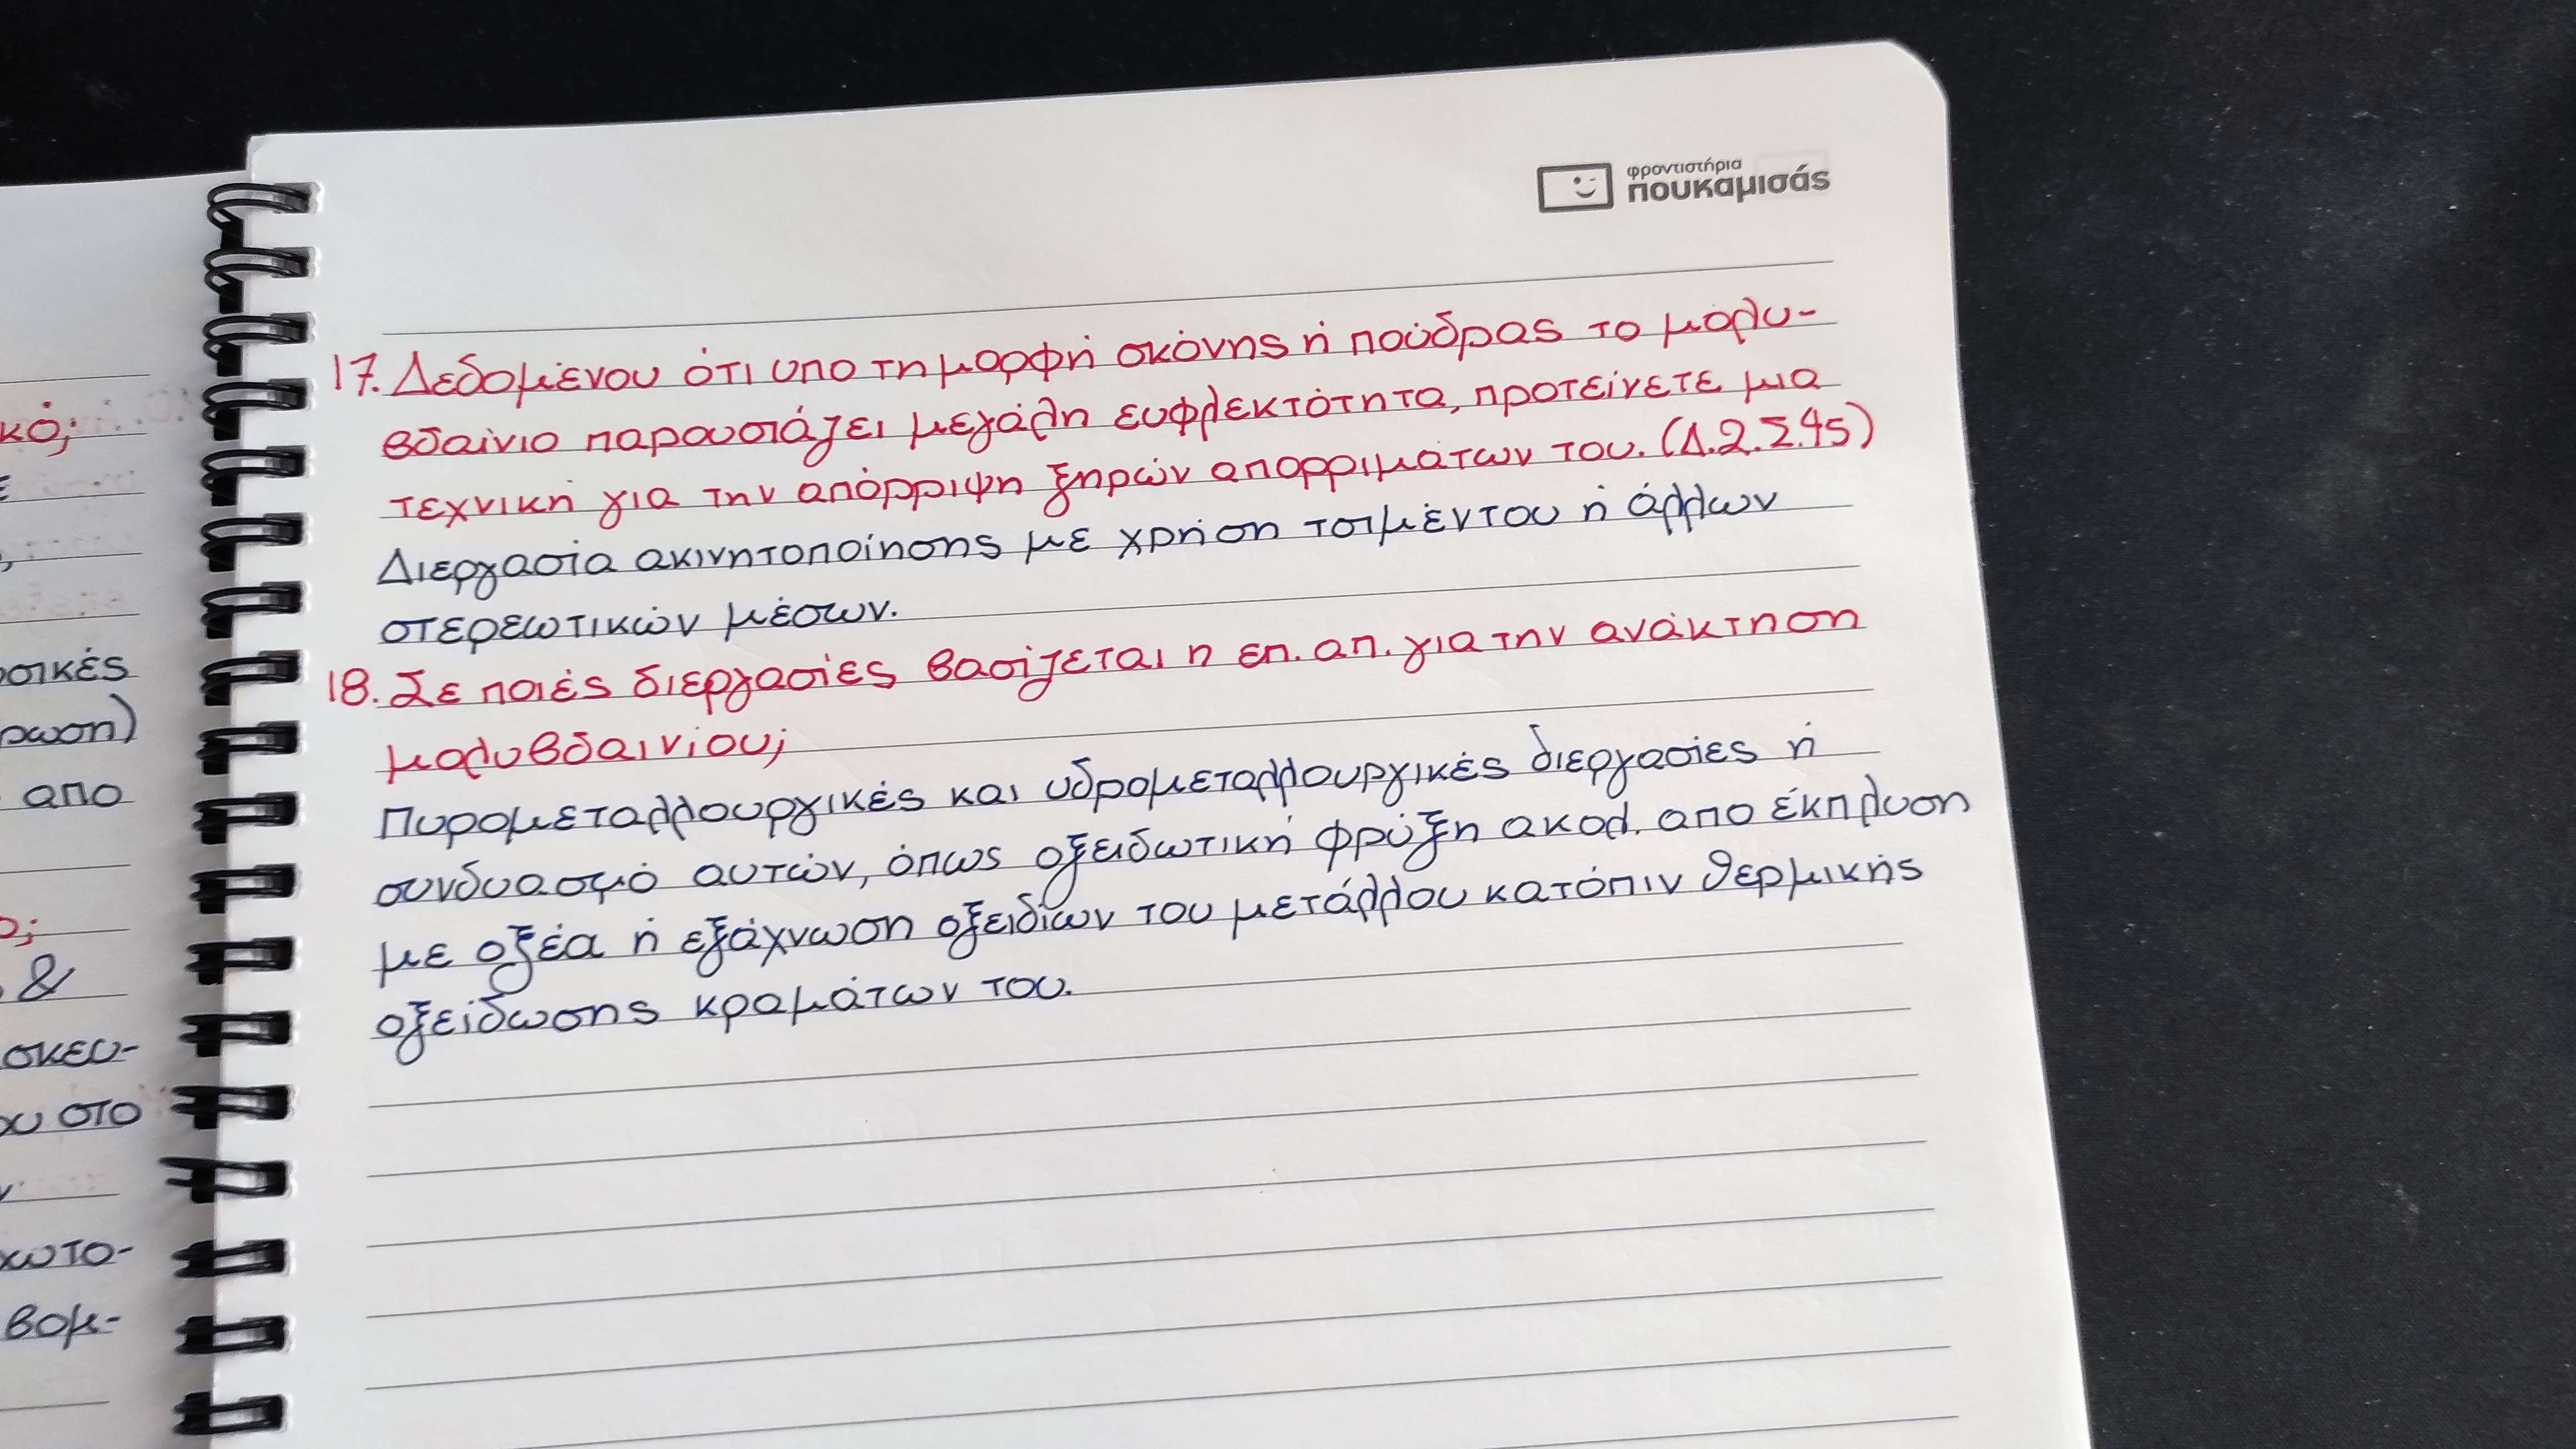 φροντιστήρια
πουκαμισάς
17. Δεδομένου ότι υπο τη μορφή σκόνης ή πούδρας το μολυ-
βδαίνιο παρουσιάζει μεγάλη ευφλεκτότητα, προτείνετε μια
τεχνική για την απόρριψη ξηρών απορριμάτων του. (Δ.2.Σ.45)
Διεργασία ακινητοποίησης με χρήση τσιμέντου ή άλλων
στερεωτικών μέσων.
18. Σε ποιές διεργασίες βασίζεται η επ. απ. για την ανάκτηση
μολυβδαινίου;
Πυρομεταλλουργικές και υδρομεταλλουργικές διεργασίες ή
συνδυασμό αυτών, όπως οξειδωτική φρύξη ακολ. απο έκπλυση
με οξέα ή εξάχνωση οξειδίων του μετάλλου κατόπιν θερμικής
οξείδωσης κραμάτων του.
κό;
σικές
ρωση)
απο
&
σκευ-
στο
χωτο-
βομ-